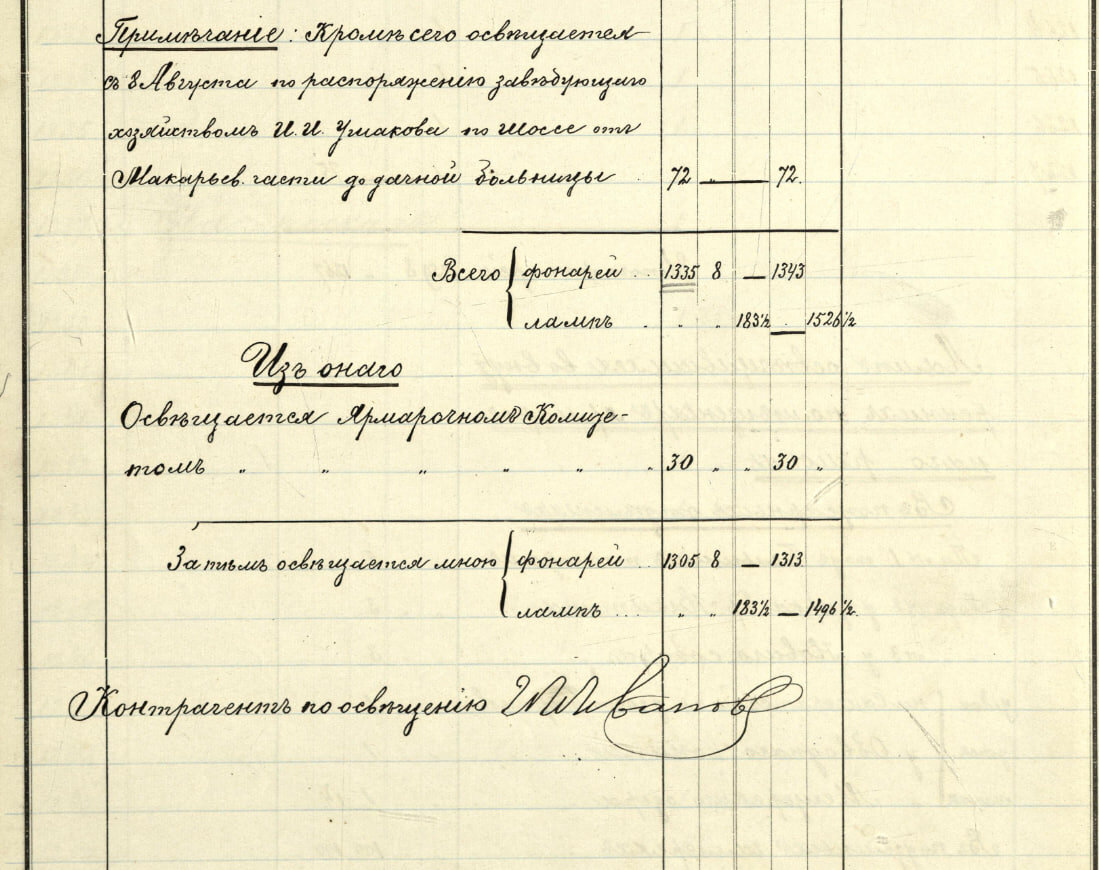 Примѣчаніе: Кромѣ сего освѣщается
съ 8 Августа по распоряженію завѣдующаго
хозяйствомъ И. И. Ушакова по Шоссе отъ
Макарьев. части до дачной больницы . 72 „ — 72.
Всего { фонарей . . 1335 8 — 1343
лампъ . „ „ 183½ . 1526½
Изъ онаго
Освѣщается Ярмарочномъ Комите-
томъ „ „ „ „ „ . 30 „ „ 30 „
Затѣмъ освѣщается мною { фонарей . . 1305 8 — 1313
лампъ . . . „ „ 183½ — 1496½.
Контрагентъ по освѣщенію И И Ивановъ